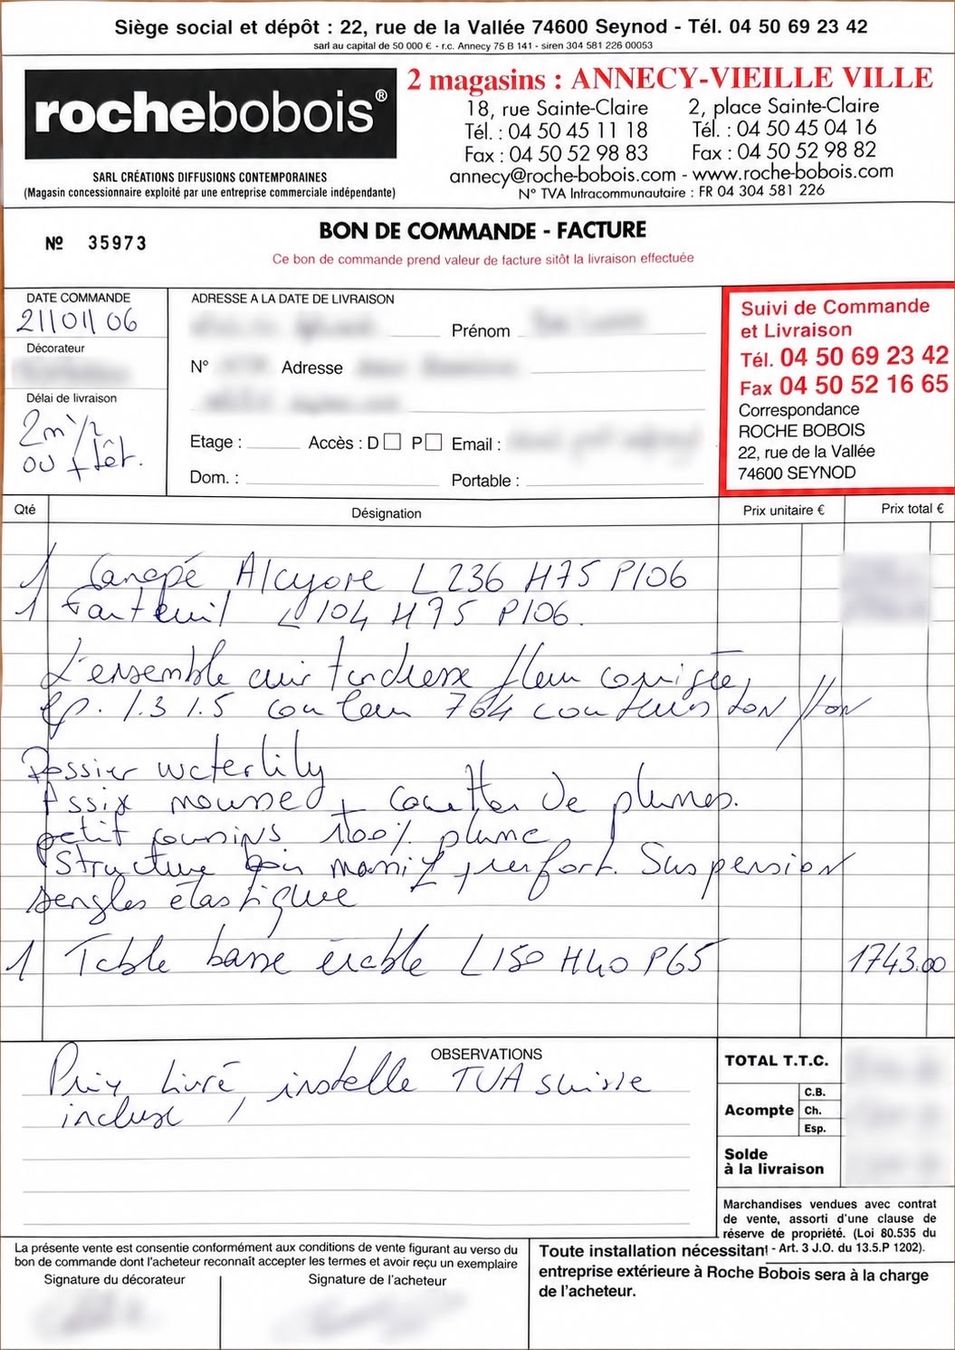 Siège social et dépôt : 22, rue de la Vallée 74600 Seynod - Tél. 04 50 69 23 42
sarl au capital de 50 000 € - r.c. Annecy 75 B 141 - siren 304 581 226 00053
rochebobois®
SARL CRÉATIONS DIFFUSIONS CONTEMPORAINES
(Magasin concessionnaire exploité par une entreprise commerciale indépendante)
2 magasins : ANNECY-VIEILLE VILLE
18, rue Sainte-Claire 2, place Sainte-Claire
Tél. : 04 50 45 11 18 Tél. : 04 50 45 04 16
Fax : 04 50 52 98 83 Fax : 04 50 52 98 82
annecy@roche-bobois.com - www.roche-bobois.com
N° TVA Intracommunautaire : FR 04 304 581 226
Nº 35973
BON DE COMMANDE - FACTURE
Ce bon de commande prend valeur de facture sitôt la livraison effectuée
DATE COMMANDE
21/01/06
Décorateur
Délai de livraison
2m 1/2
ou + tôt.
ADRESSE A LA DATE DE LIVRAISON
Prénom
N° Adresse
Etage : Accès : D P Email :
Dom. : Portable :
Suivi de Commande
et Livraison
Tél. 04 50 69 23 42
Fax 04 50 52 16 65
Correspondance
ROCHE BOBOIS
22, rue de la Vallée
74600 SEYNOD
Qté Désignation Prix unitaire € Prix total €
1 Canapé Alcyore L236 H75 P106
1 Fauteuil L104 H75 P106.
L'ensemble cuir tendresse fleur corrigée,
ep. 1.3 1.5 couleur 764 coutures ton/ton
Dossier waterlily
Assix mousse + couette de plumes.
petit cousins 100% plume
Structure bois massif + renfort. Suspension
sengles élastique
1 Table basse érable L150 H40 P65 1743.00
OBSERVATIONS
Prix livré, instelle TVA suisse
incluse
TOTAL T.T.C.
Acompte C.B.
Ch.
Esp.
Solde
à la livraison
Marchandises vendues avec contrat
de vente, assorti d'une clause de
réserve de propriété. (Loi 80.535 du
- Art. 3 J.O. du 13.5.P 1202).
La présente vente est consentie conformément aux conditions de vente figurant au verso du
bon de commande dont l'acheteur reconnaît accepter les termes et avoir reçu un exemplaire
Signature du décorateur Signature de l'acheteur
Toute installation nécessitant
entreprise extérieure à Roche Bobois sera à la charge
de l'acheteur.